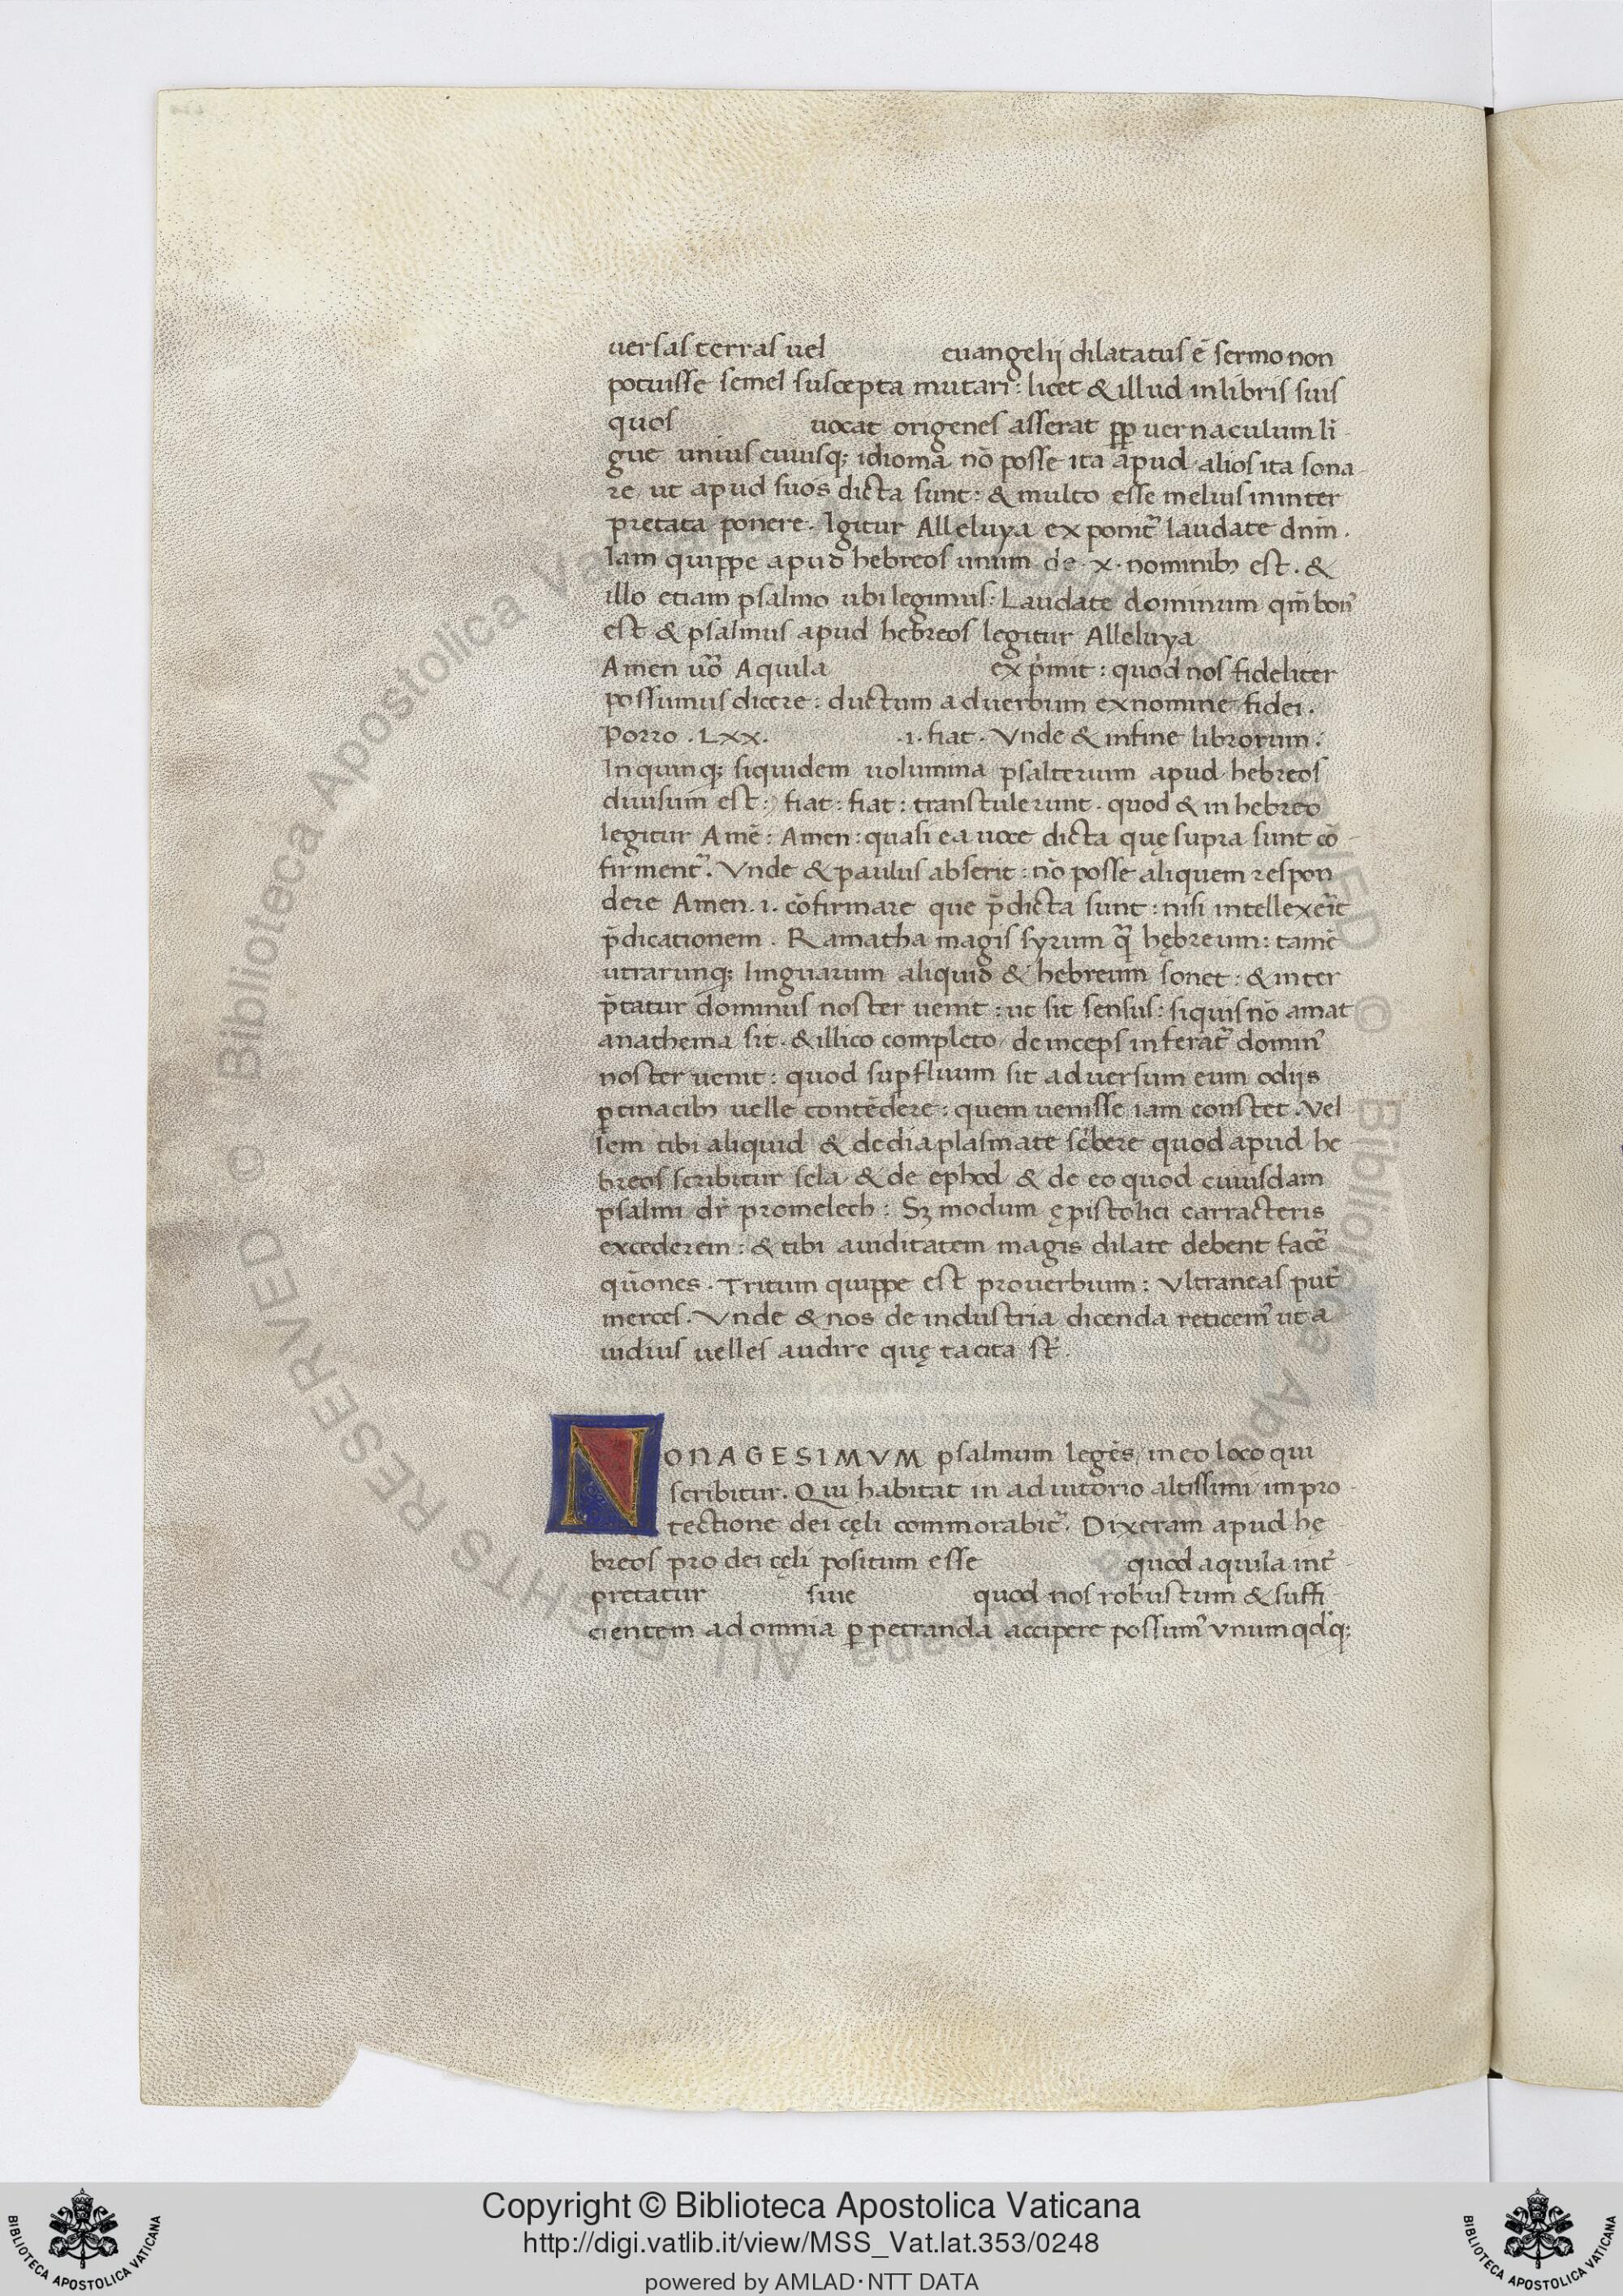 uersas terras uel euangelij dilatatus ē sermo non
potuisse semel suscepta mutari: licet & illud in libris suis
quos uocat origenes asserat ꝓp uernaculum li
gue unius cuiusq; idioma nō posse ita apud alios ita sona
re ut apud suos dicta sunt: & multo esse melius ininter
pretata ponere. Igitur Alleluya exponit᷑ laudate dnm̄.
Iam quippe apud hebreos unum de .x. nominib; est. &
illo etiam psalmo ubi legimus: Laudate dominum qm̄ bon᾽
est & psalmus apud hebreos legitur Alleluya
Amen uo᷑ Aquila exp̍mit: quod nos fideliter
possumus dicere: ductum aduerbum ex nomine fidei.
Porro .Lxx. .i. fiat. Vnde & in fine librorum:
In quinq; siquidem uolumina psalterium apud hebreos
diuisum est: fiat: fiat: transtulerunt. quod & in hebreo
legitur Amē: Amen: quasi ea uoce dicta quę supra sunt cō
firment᷑. Vnde & paulus abserit: nō posse aliquem respon
dere Amen .i. cōfirmare que p̄dicta sunt: nisi intellexer̄it
p̄dicationem. Ramatha magis syrum q̄ hębreum: tamē
utrarunq; linguarum aliquid & hebreum sonet: & inter
p̄tatur dominus noster uenit: ut sit sensus: siquis nō amat
anathema sit. & illico completo deinceps inferat᷑ domin᾽
noster uenit: quod suꝑfluum sit aduersum eum odijs
ꝑtinacib; uelle contēdere: quem uenisse iam constet. Vel
lem tibi aliquid & de diaplasmate sc̍bere quod apud he
breos scribitur sela & de ephod & de eo quod cuiusdam
psalmi dr̄ promelech: Sꝫ modum ępistolici carracteris
excederem: & tibi auiditatem magis dilate debent facē
q̄uones. Tritum quippe est prouerbium: Vltraneas put̄
merces. Vnde & nos de industria dicenda reticem᾽ ut a
uidius uelles audire quę tacita st̄.
NONAGESIMVM psalmum legēs, in eo loco qui
scribitur. Qui habitat in adiutorio altissimi, in pro
tectione dei cęli commorabit᷑. Dixeram apud hę
breos pro dei cęli positum esse quod aquila int̄
pretatur siue quod nos robustum & suffi
cientem ad omnia ꝑpetranda accipere possum᾽ vnumqd̓q;
Copyright © Biblioteca Apostolica Vaticana
http://digi.vatlib.it/view/MSS_Vat.lat.353/0248
powered by AMLAD·NTT DATA
BIBLIOTECA APOSTOLICA VATICANA
BIBLIOTECA APOSTOLICA VATICANA
© Biblioteca Apostolica Vaticana ALL RIGHTS RESERVED